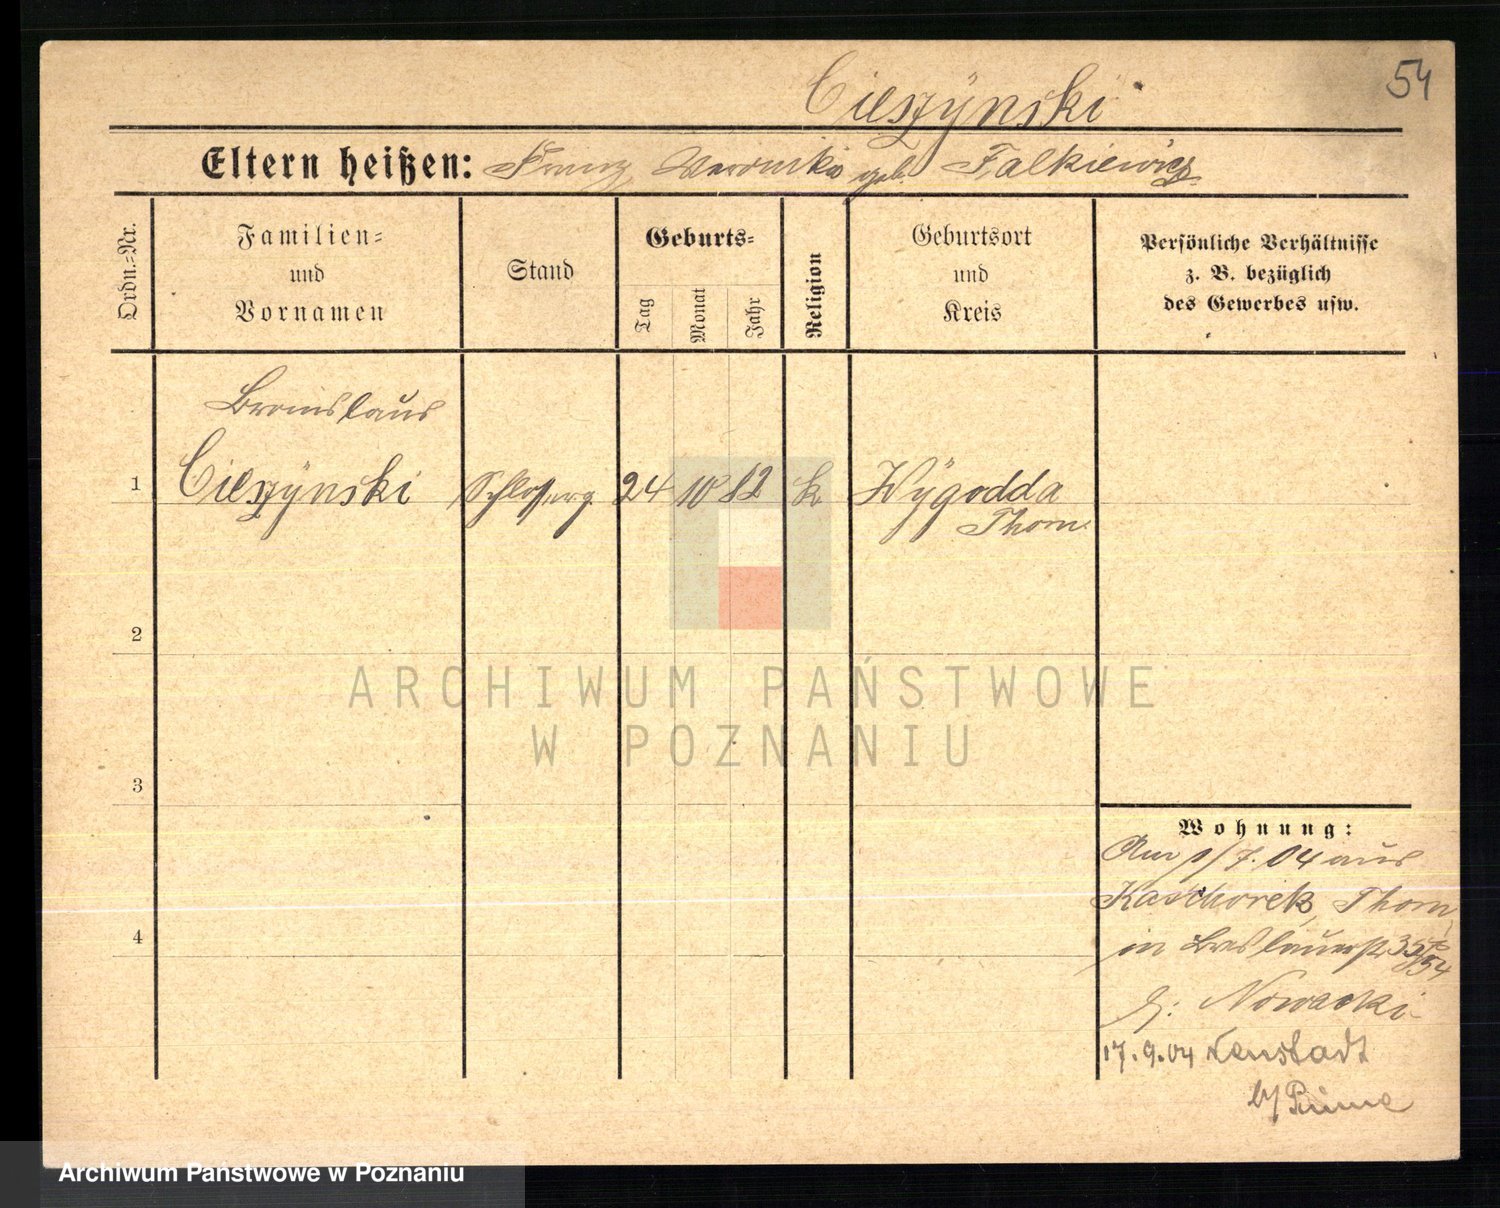 54
Cieszÿnski
Eltern heißen: Franz Veronika geb. Falkiewicz
Ordn.-Nr.
Familien-
und
Vornamen
Stand
Geburts-
Tag
Monat
Jahr
Religion
Geburtsort
und
Kreis
Persönliche Verhältnisse
z. B. bezüglich
des Gewerbes usw.
Bronislaus
1 Cieszÿnski Schlosserg. 24 10 82 k Wÿgodda
Thorn
2
ARCHIWUM PAŃSTWOWE
W POZNANIU
3
Wohnung:
Am 1/7. 04 aus
Kaschorek, Thorn
4
in Breslauerstr 35
54
b. Nowacki
17.9.04 Neustadt
b/ Pinne
Archiwum Państwowe w Poznaniu